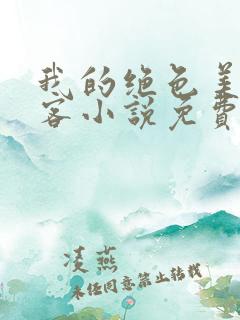 我的绝色美
客小说免费
凌燕
未经同意禁止转载